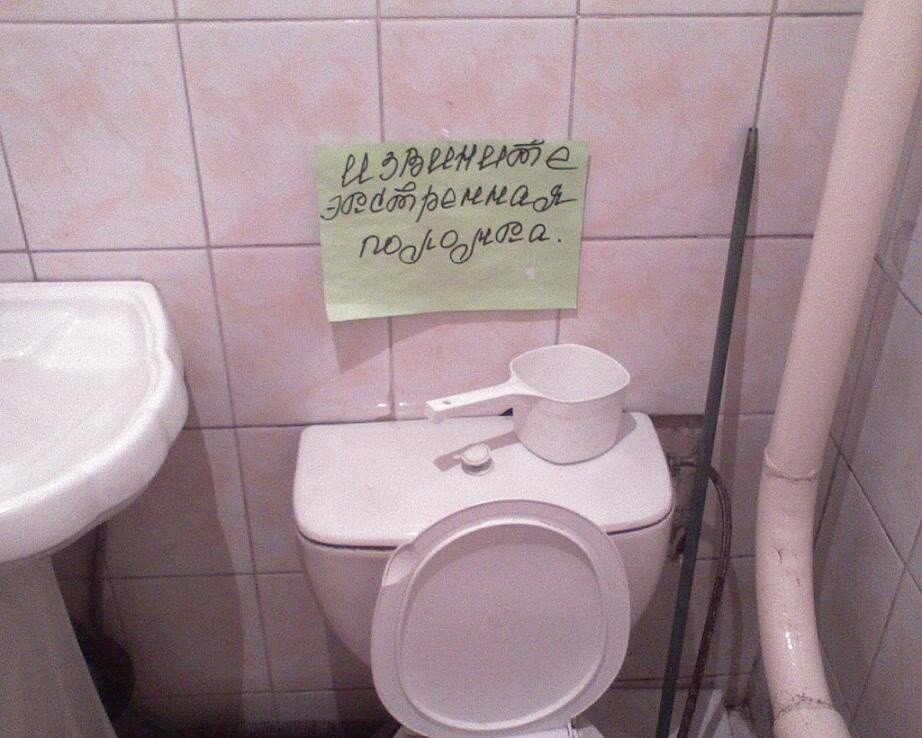 извините
экстренная
поломка.